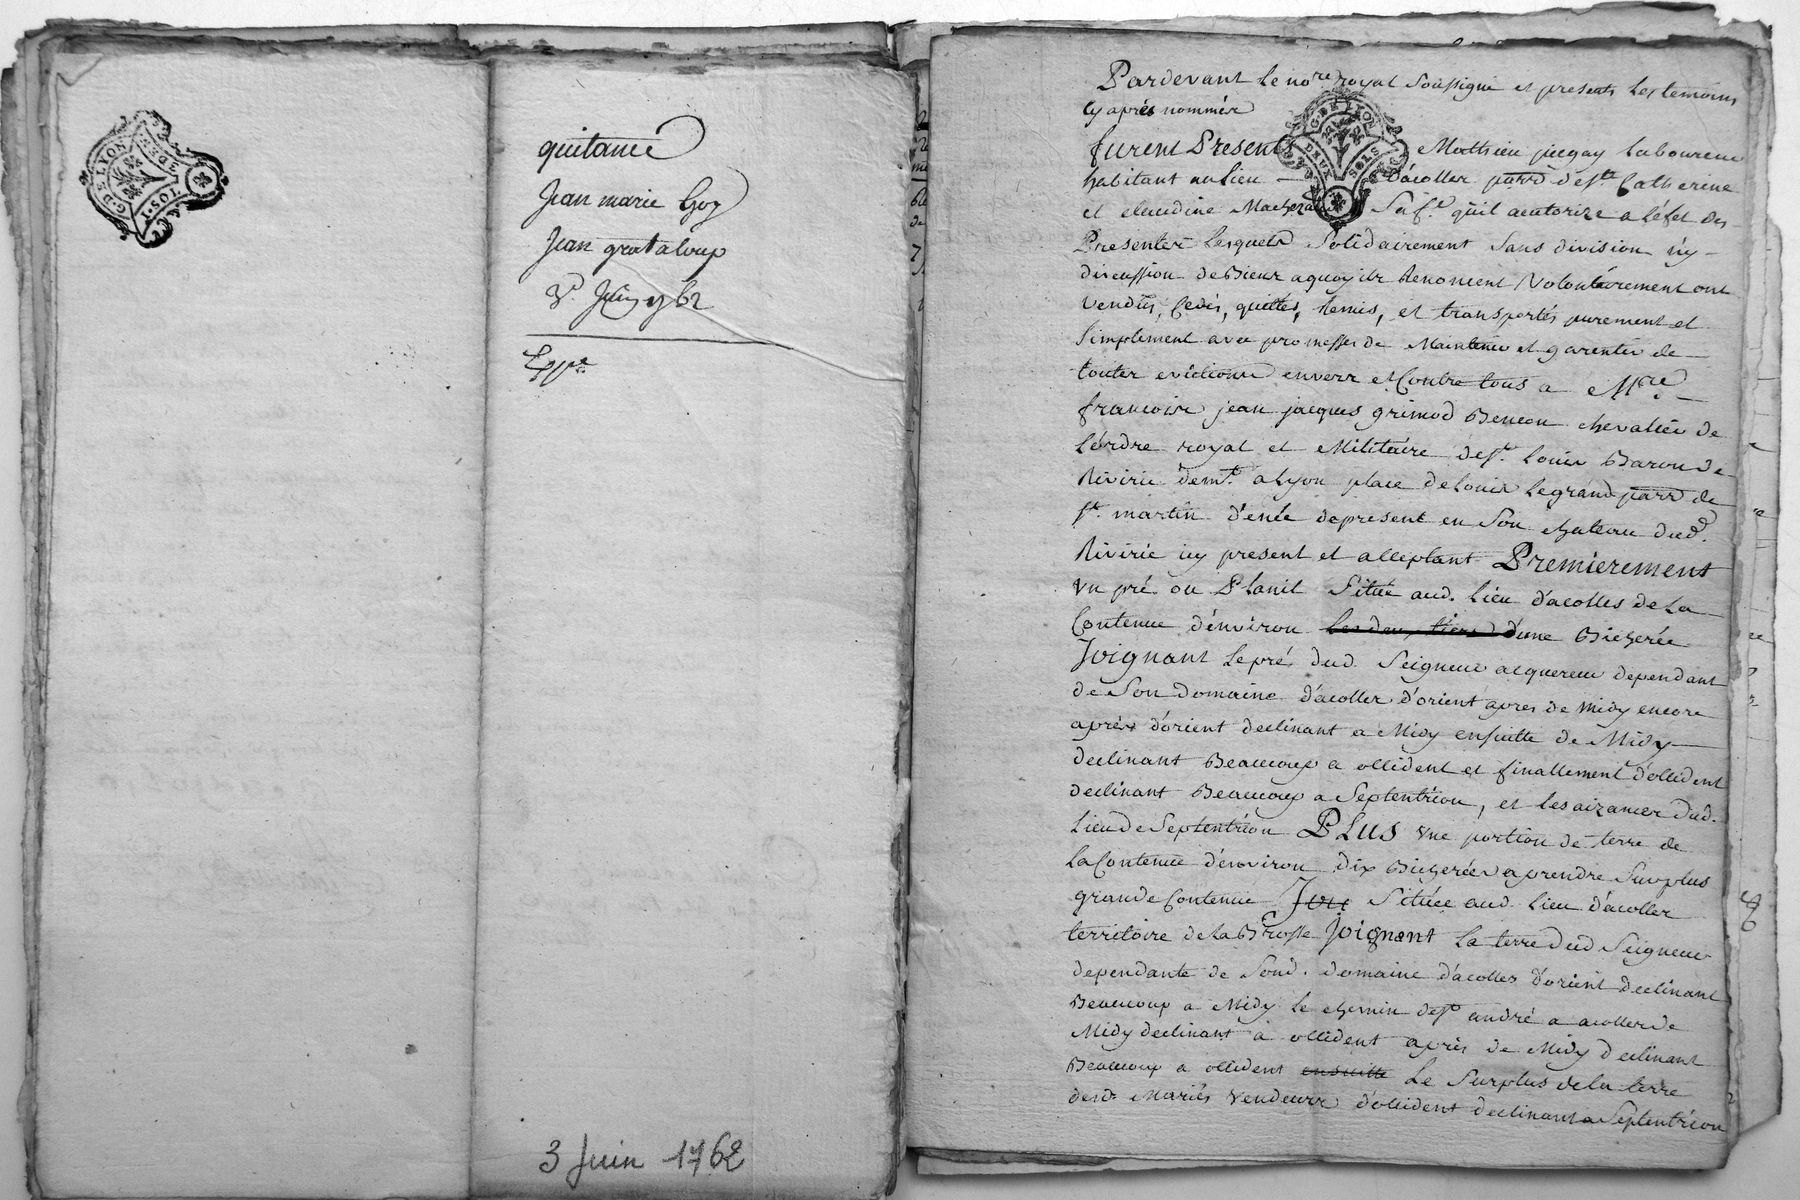 G. DE LYON
DEUX SOLS
quitance
Jean marie Goy
Jean grataloup
3e. Juin 1762
3 Juin 1762
Pardevant le nore royal soussigné et presents les temoins
cy aprés nommés
furent Presents Mathieu laboureur
habitant au lieu d'acolles parr de st. Catherine
et claudine sa fe. qu'il autorize a l'éfet des
Presentes lesquels solidairement sans division ny
discussion de Bieux a quoy ils Renoncent volontairement ont
vendus, cedés, quittés, Remis, et transportés purement et
simplement avec promesses de Maintenir et garentir de
toutes evictions envers et Contre tous a Mre.
francois jean jacques grimod Beneon chevalier de
l'órdre royal et Militaire de st. louis Baron de
Riviríe demt. a lyon place de louis legrand parr de
st. martin d'enée depresent en son chateau dud.
Riviríe icy present et acceptant Premierement
vn pré ou Planil situé aud. lieu d'acolles de la
Contenue d'énviron les deux tiers d'une Bicherée
Joignant le pré dud. seigneur acquereur dependant
de son domaine d'acolles d'orient apres de midy encore
aprés d'orient declinant a Midy ensuitte de Midy
declinant Beaucoup a occident et finallement d'occident
declinant Beaucoup a septentrion, et les aizances dud.
lieu de septentrion PLUS vne portion de terre de
la Contenue d'énviron dix Bicherées a prendre sur plus
grande Contenue Joi située aud. lieu d'ácolles
territoire de la Brosse Joignant la terre dud seigneur
dependante de sond. domaine d'acolles d'orient declinant
Beaucoup a Midy le chemin de st andré a acolles de
Midy declinant a occident aprés de Midy declinant
Beaucoup a occident ensuitte le surplus de la terre
desd. Mariés vendeurs d'occident declinant a septentrion